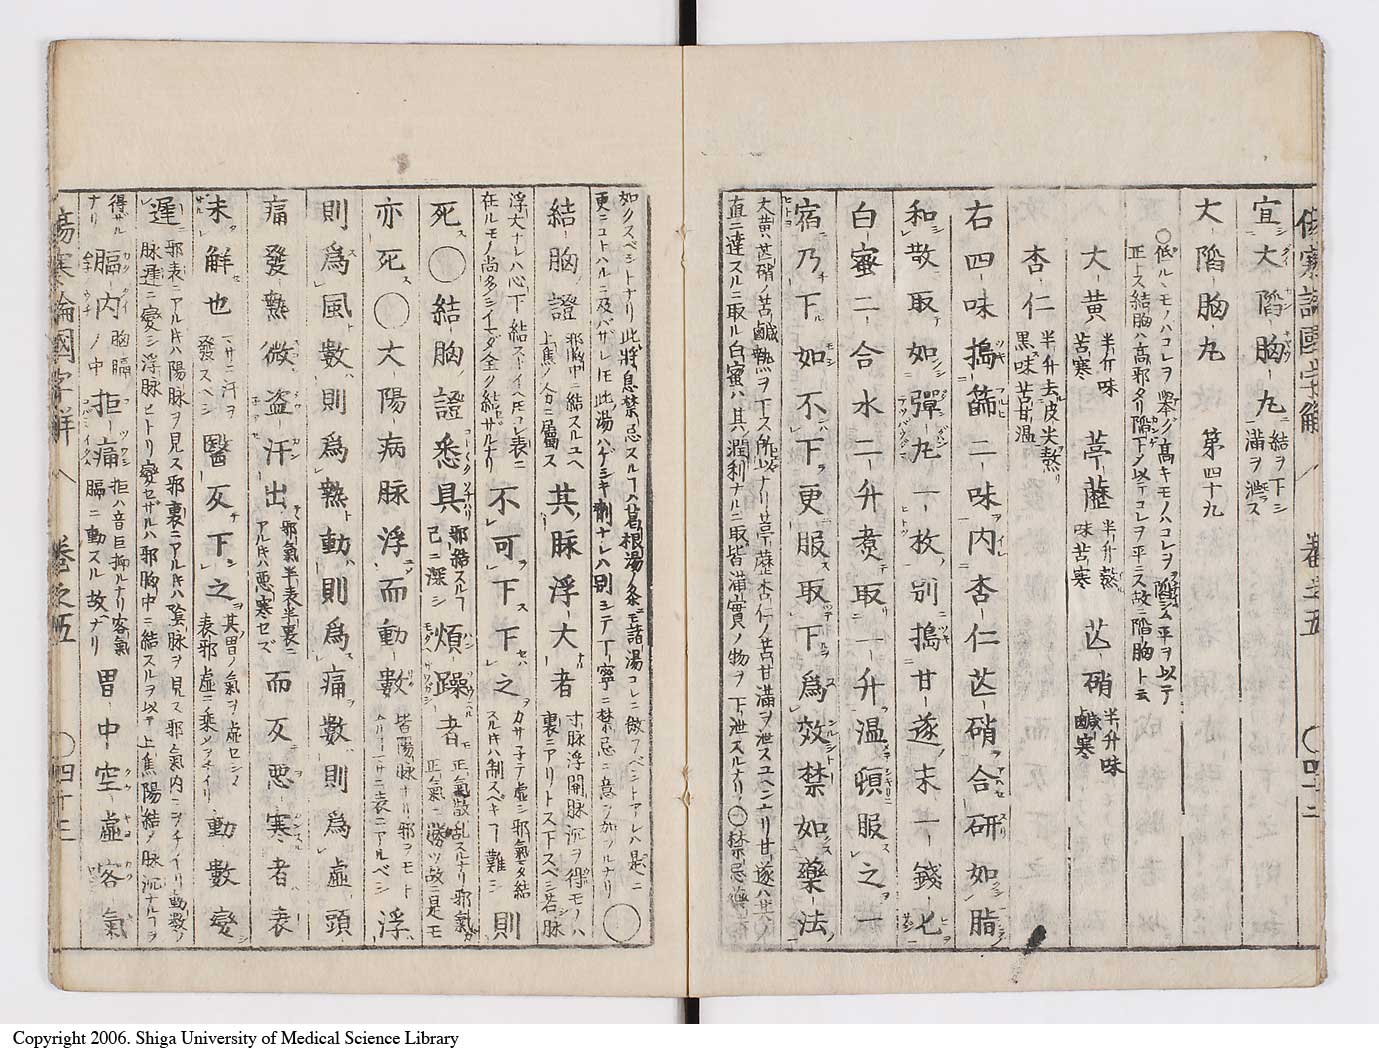 傷寒論國字解 卷之五 〇四十二
宜大陷胸丸 結ヲ下シ 滿ヲ泄ラス
大陷胸丸 第四十九
〇低ルモノハコレヲ擧ゲ高キモノハコレヲ陷シム平ヲ以テ
正トス結胸ハ高邪タリ陷下ノ以テコレヲ平ニス故ニ陷胸ト云
大黃 半斤味苦寒 葶藶 半升熬味苦寒 芒硝 半升味鹹寒
杏仁 半升去皮尖熬黑味苦甘溫
右四味搗篩二味内杏仁芒硝合研如脂
和散取如彈丸一枚別搗甘遂末一錢匕
白蜜二合水二升煮取一升溫頓服之一
宿乃下如不下更服取下爲效禁如藥法
大黃芒硝ノ苦鹹熱ヲ下ス所以ナリ葶藶杏仁ノ苦甘滿ヲ泄スユヘン
直ニ達スルニ取ル白蜜ハ其潤利ナルニ取皆滿實ノ物ヲ下泄スルナリ
如クスベシトナリ此將息禁忌スルヿハ葛根湯ノ条ニモ諸湯コレニ倣フベシトアレハ是ニ
更ニコトハルニ及バザレ𪜈此湯ハゲシキ劑ナレハ別シテ丁寧ニ禁忌ニ意ヲ加フルナリ 〇
結胸證 邪胸中ニ結スルユヘ上焦ノ人分ニ屬ス 其脉浮大者 寸脉浮関脉沉ヲ得ルモノハ裏ニアリトス下スベシ若脉
浮大ナレハ心下結ストイヘ𪜈コレ表ニ在ルモノ尚多シイマダ全ク結セザルナリ 不可下下之 カサ子テ虛シ邪氣マタ結スルキハ制スベキヿ難シ 則
死〇結胸證悉具 邪結スルヿ已ニ深シ 煩躁者 正氣散乱スルナリ邪氣正氣ニ勝ツ故ニ是モ
亦死〇太陽病脉浮而動數 皆陽脉ナリ邪ヲモト 表ニアルベシ 浮
則爲風數則爲熱動則爲痛數則爲虛頭
痛發熱微盗汗出 邪氣半表半裏ニアルキハ悪寒セズ 而反悪寒者表
未解也 マサニ汗ヲ發スベシ 醫反下之 其胃ノ氣ヲ虛セシメ表邪虛ニ乘ソヲチイリ 動數變
遲 邪表ニアルキハ陽脉ヲ見ス邪裏ニアルキハ陰脉ヲ見ス邪氣内ニヲチイリ動數ノ脉遲ニ變シ浮脉ヒトリ變セザルハ邪胸中ニ結スルヲ以テ上焦陽結ノ脉沉ナルヿヲ
得ザルナリ 膈内拒痛 胸膈ノ中 拒ハ音巨抑ルナリ客氣膈ニ動スル故ナリ 胃中空虛客氣
傷寒論國字解 卷之五 〇四十三
Copyright 2006. Shiga University of Medical Science Library